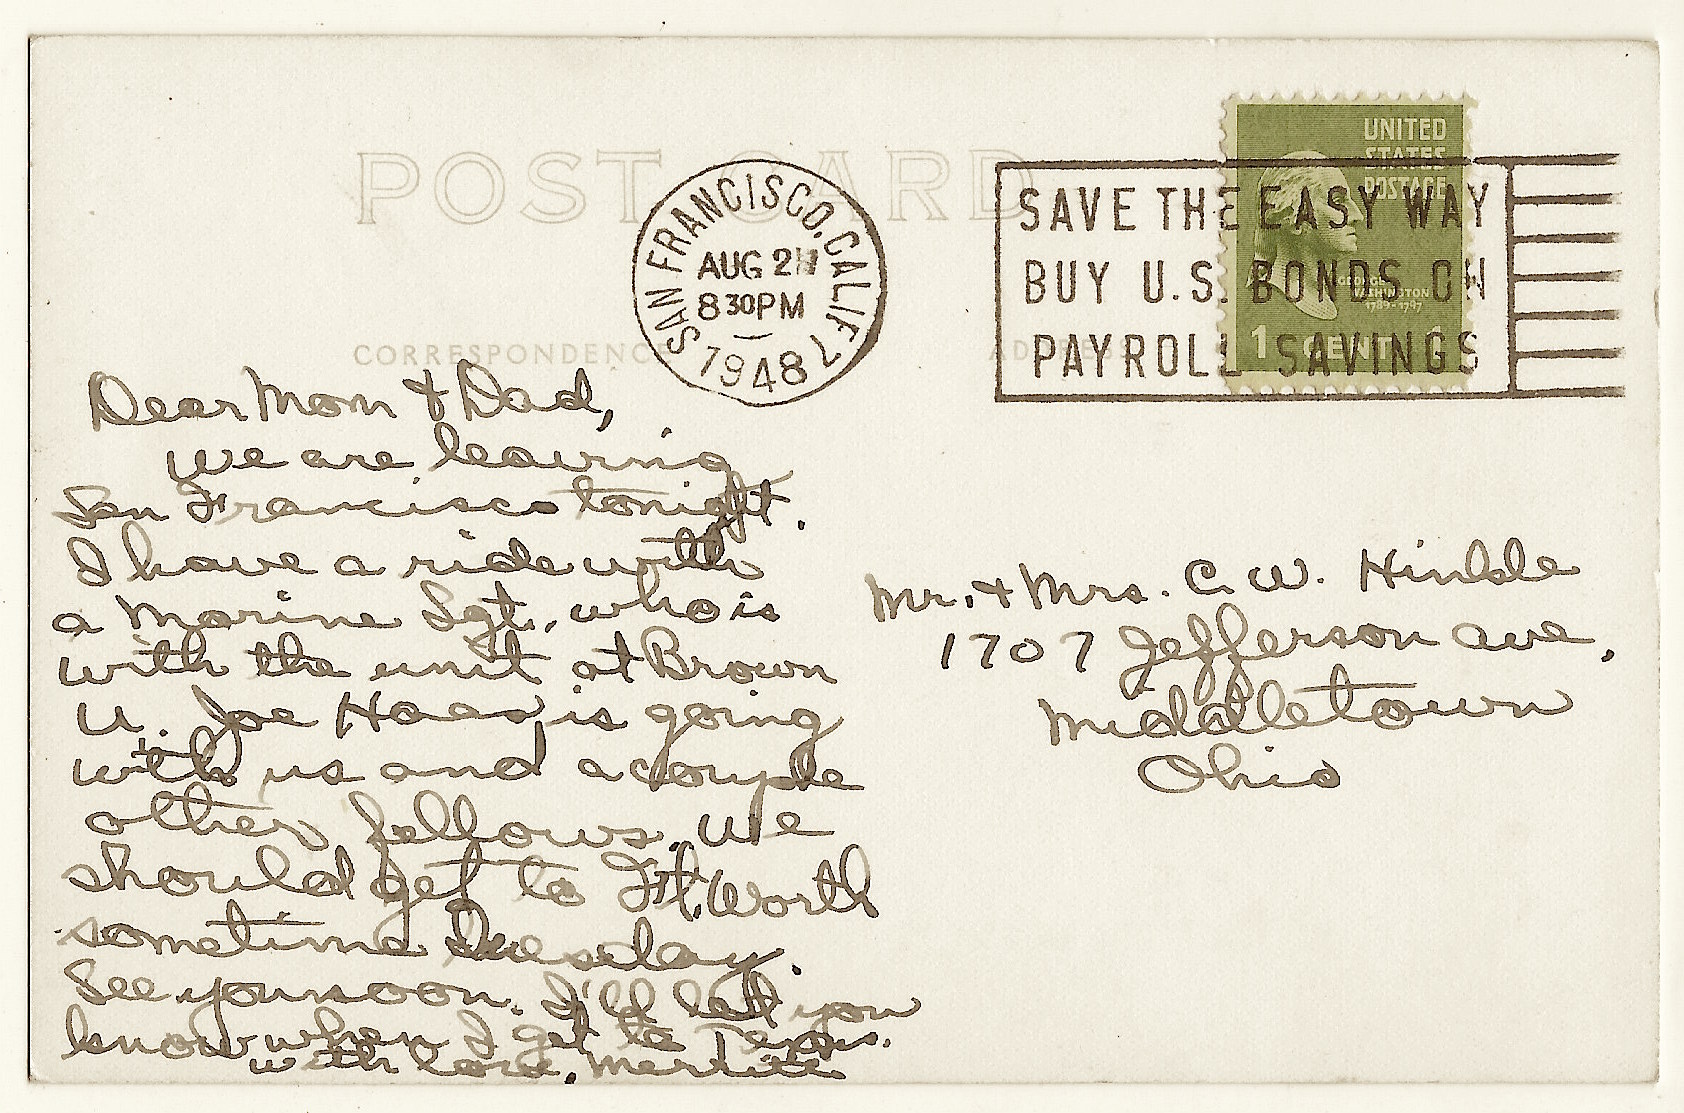 POST CARD
SAN FRANCISCO, CALIF.
AUG 2
8 30 PM
1948
SAVE THE EASY WAY
BUY U.S. BONDS ON
PAYROLL SAVINGS
UNITED
STATES
POSTAGE
GEORGE
WASHINGTON
1789-1797
1 CENT
CORRESPONDENCE
ADDRESS
Dear Mom & Dad,
We are leaving
San Francisco tonight.
I have a ride with
a Marine Sgt. who is
with the unit at Brown
U. Joe Haas is going
with us and a couple
other fellows. We
should get to Ft. Worth
sometime Tuesday.
See you soon. I'll let you
know when I get to Texas.
With love, Merritt
Mr. & Mrs. C. W. Hinkle
1707 Jefferson Ave.
Middletown
Ohio